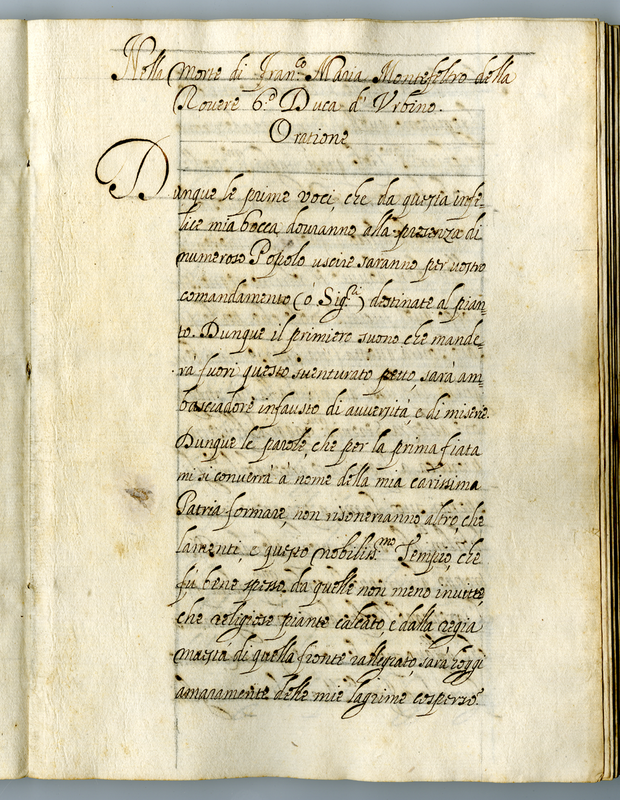 Nella Morte di Fran.co Maria Montefeltro della
Rovere 6.o Duca d' Vrbino.
Oratione
Dunque le prime voci, che da questa infe
lice mia bocca, douranno alla presenza di
numeroso Popolo uscire saranno per uostro
comandamento (ò Sig.ri) destinate al pian_
to. Dunque il primiero suono che mande_
rà fuori questo suenturato petto, sarà am_
basciadore infausto di auuersità, e di miserie.
Dunque le parole, che per la prima fiata
mi si conuerrà à nome della mia carissima
Patria formare, non risoneranno altro, che
lamenti, e questo nobiliss.mo Tempio, che
fù bene spesso da quelle non meno inuitte,
che religiose piante calcato, e dalla regia
maestà di quella fronte rallegrato, sarà hoggi
amaramente delle mie lagrime cosperso.